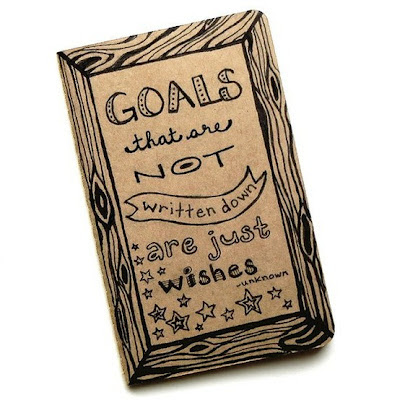 GOALS
that are
NOT
written down
are just
wishes
-unknown